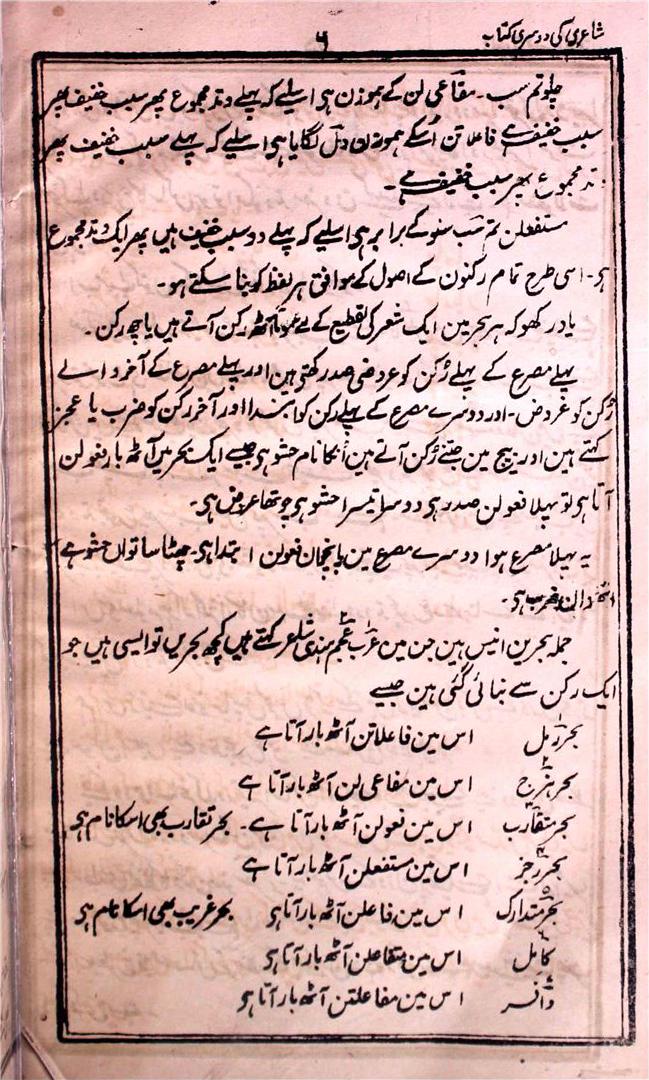 شاعری کی دوسری کتاب
۶
چلو تم سب ۔ مفاعی لن کے ہموزن ہی اسلیے کہ پہلے وتد مجموع پھر سبب خفیف پھر
سبب خفیف ہے فاعلاتن اُسکے ہموزن دل لگایا ہی اسلیے کہ پہلے سبب خفیف پھر
وتد مجموع پھر سبب خفیف ہے ۔
مستفعلن تم سَب سنو کے برابر ہی اسلیے کہ پہلے دو سبب خفیف ہیں پھر ایک وتد مجموع
ہی ۔ اسی طرح تمام رکنون کے اصول کے موافق ہر لفظ کو بنا سکتے ہو ۔
یاد رکھو کہ ہر بحر مین ایک شعر کی تقطیع کے لیے عموماً آٹھ رکن آتے ہیں یا چھ رکن ۔
پہلے مصرع کے پہلے رُکن کو عروضی صدر کہتے ہین اور پہلے مصرع کے آخر والے
رُکن کو عروض ۔ اور دوسرے مصرع کے پہلے رکن کو ابتدا اور آخر رکن کو ضرب یا عجز
کہتے ہین اور بیچ مین جتنے رُکن آتے ہین اُنکا نام حشو ہی جیسے ایک بحر میں آٹھ بار فعولن
آتا ہی تو پہلا فعولن صدر ہی دوسرا تیسرا حشو ہی چوتھا عروض ہی ۔
یہ پہلا مصرع ہوا دوسرے مصرع مین پانچوان فعولن ابتدا ہی ۔ چھٹا ساتواں حشو ہے
آٹھوان ضرب ہی ۔
جملہ بحرین انیس ہین جن مین عرَب عجم ہندی شاعر کہتے ہیں کچھ بحریں تو ایسی ہیں جو
ایک رکن سے بنائی گئی ہین جیسے
بحر رمل اس مین فاعلاتن آٹھ بار آتا ہے
بحر ہزج اس مین مفاعی لن آٹھ بار آتا ہے
بحر متقارب اس مین فعولن آٹھ بار آتا ہے ۔ بحر تقارب بھی اسکا نام ہی
بحر رجز اس مین مستفعلن آٹھ بار آتا ہے
بحر متدارک اس مین فاعلن آٹھ بار آتا ہی بحر غریب بھی اسکا نام ہی
کامل اس مین متفاعلن آٹھ بار آتا ہی
وافر اس مین مفاعلتن آٹھ بار آتا ہی